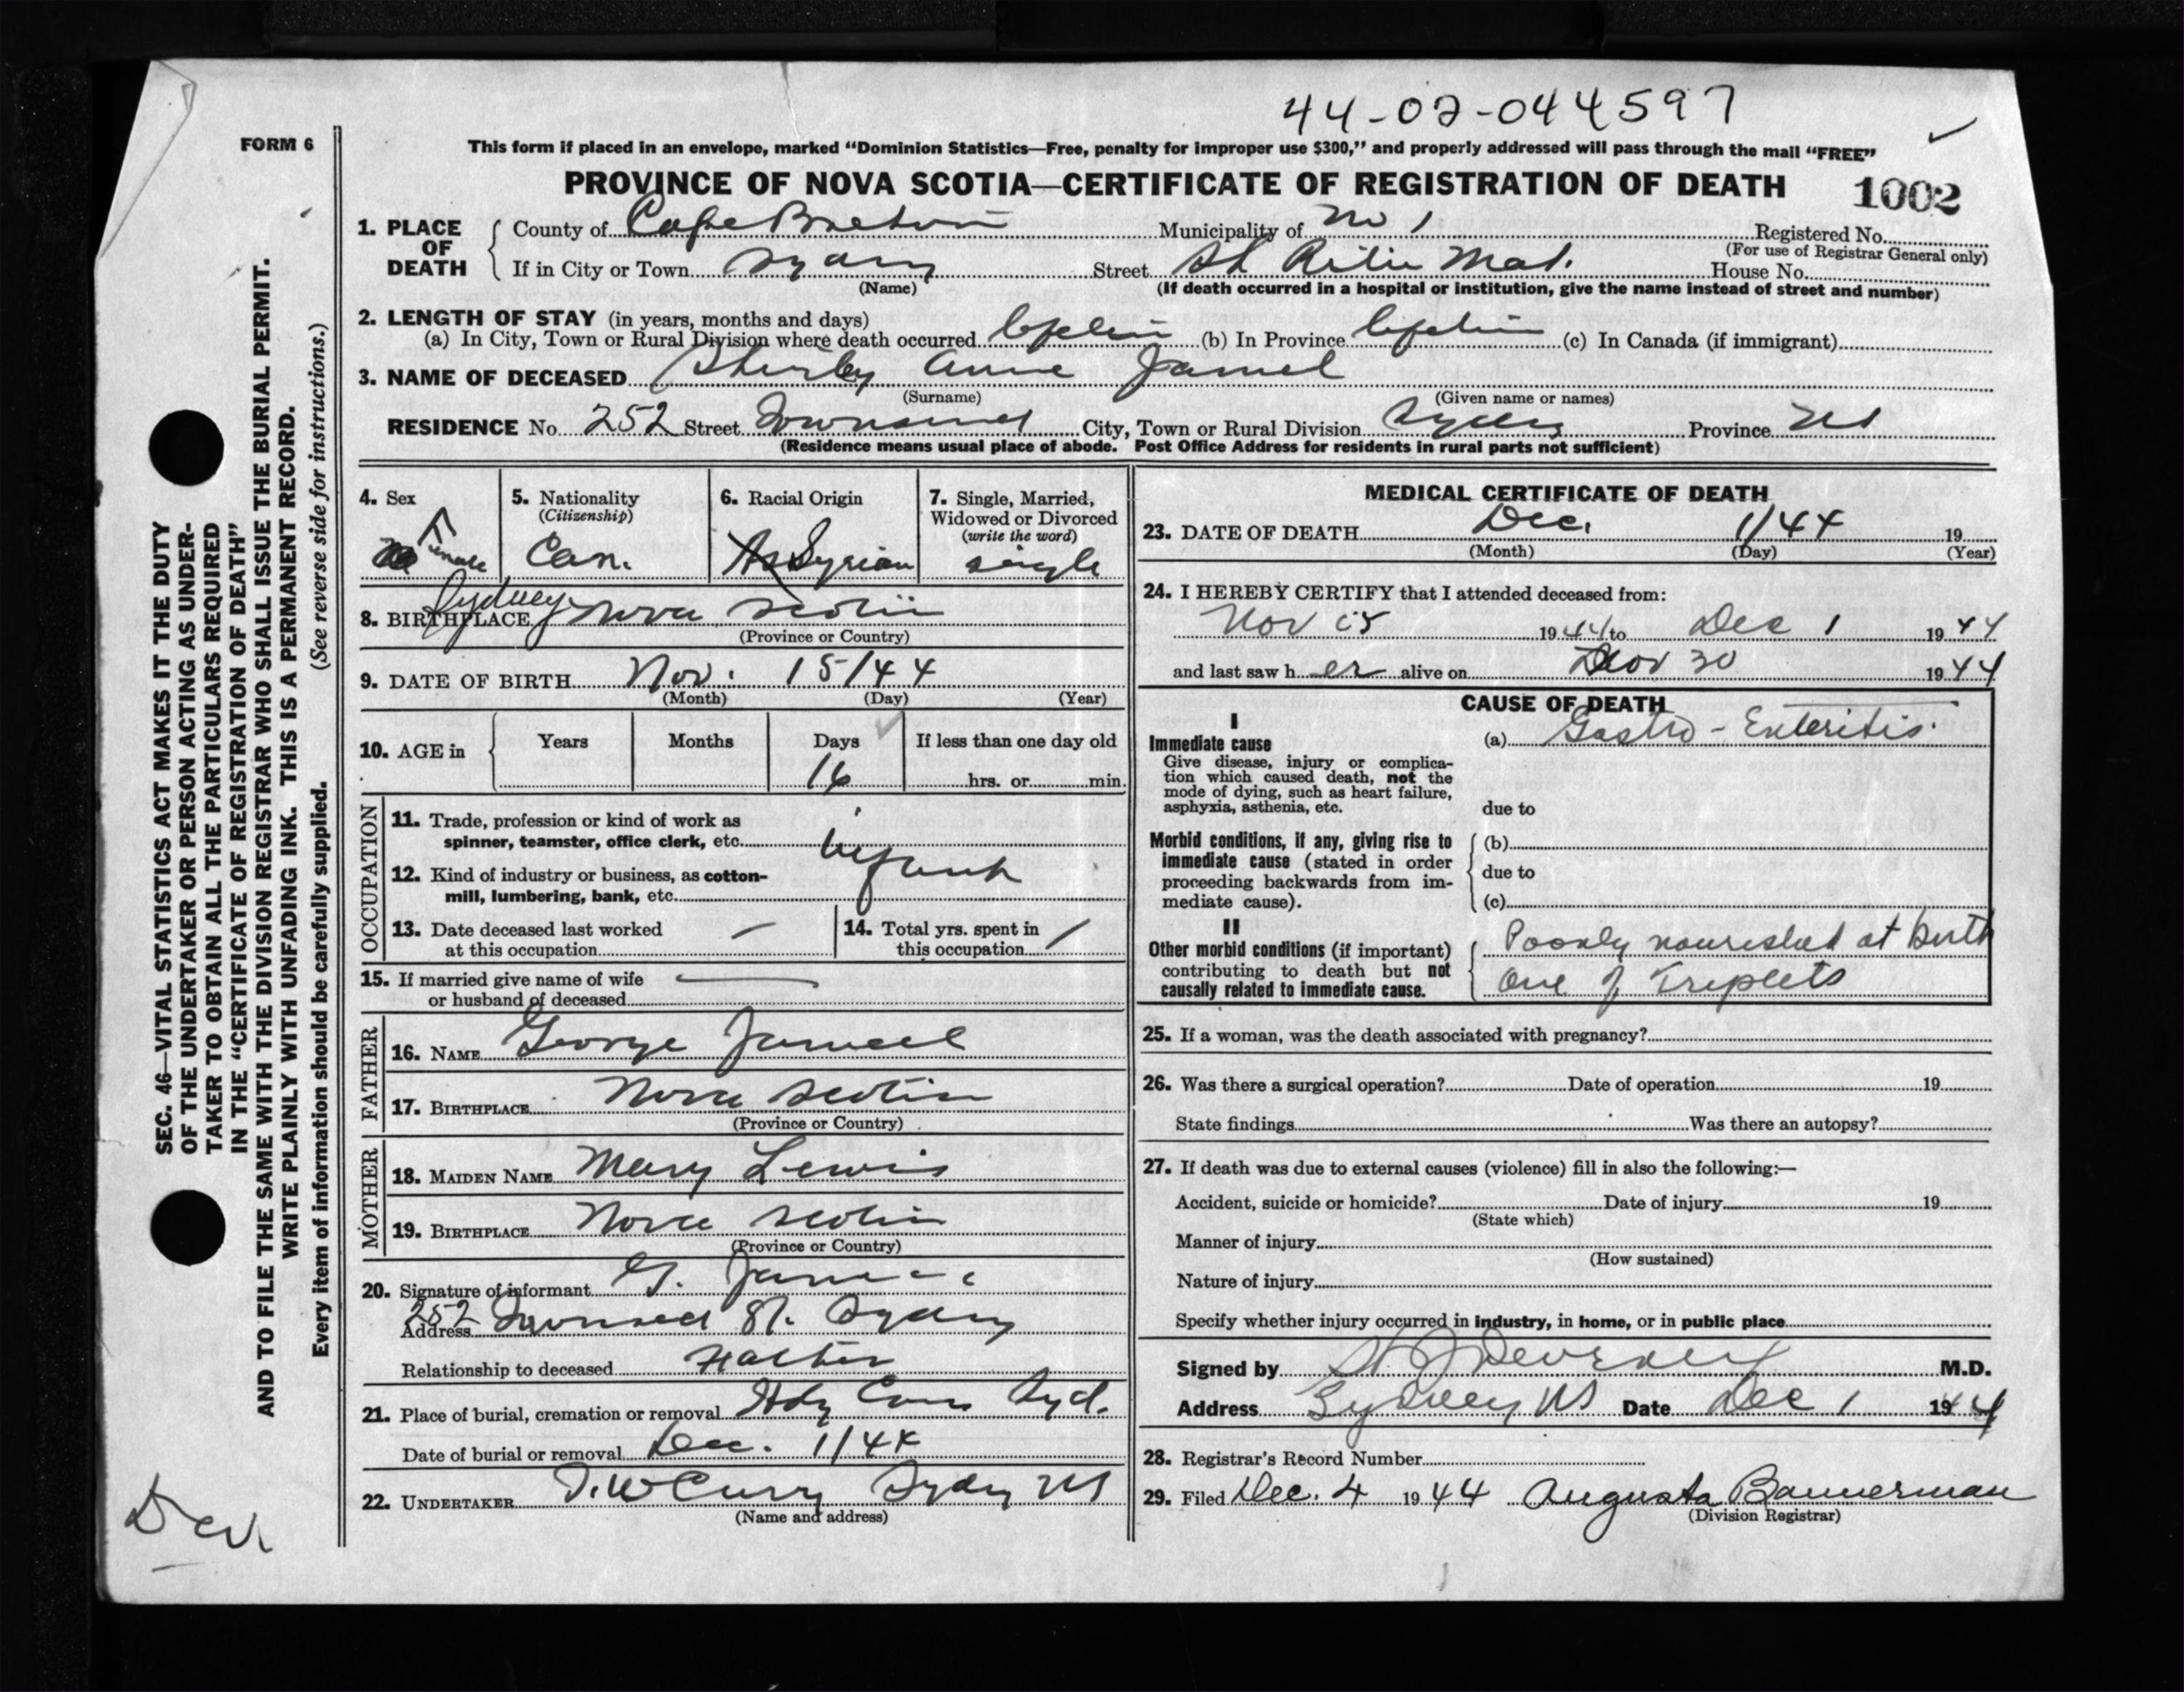 44-02-044597
FORM 6
This form if placed in an envelope, marked "Dominion Statistics—Free, penalty for improper use $300," and properly addressed will pass through the mail "FREE"
PROVINCE OF NOVA SCOTIA—CERTIFICATE OF REGISTRATION OF DEATH 1002
1. PLACE OF DEATH County of Cape Breton Municipality of No 1 Registered No.
(For use of Registrar General only)
If in City or Town Sydney Street St Mat. House No.
(Name) (If death occurred in a hospital or institution, give the name instead of street and number)
2. LENGTH OF STAY (in years, months and days)
(a) In City, Town or Rural Division where death occurred (b) In Province (c) In Canada (if immigrant)
3. NAME OF DECEASED Shirley Anne Jamel
(Surname) (Given name or names)
RESIDENCE No. 252 Street Townsend City, Town or Rural Division Sydney Province NS
(Residence means usual place of abode. Post Office Address for residents in rural parts not sufficient)
4. Sex Female
5. Nationality (Citizenship) Can.
6. Racial Origin Syrian
7. Single, Married, Widowed or Divorced (write the word) single
8. BIRTHPLACE Sydney Nova Scotia
(Province or Country)
9. DATE OF BIRTH Nov. 15/44
(Month) (Day) (Year)
10. AGE in Years Months Days If less than one day old
16 hrs. or min.
OCCUPATION
11. Trade, profession or kind of work as
spinner, teamster, office clerk, etc. infant
12. Kind of industry or business, as cotton-
mill, lumbering, bank, etc.
13. Date deceased last worked
at this occupation —
14. Total yrs. spent in
this occupation /
15. If married give name of wife
or husband of deceased —
FATHER
16. NAME George Jameel
17. BIRTHPLACE Nova Scotia
(Province or Country)
MOTHER
18. MAIDEN NAME Mary Lewis
19. BIRTHPLACE Nova Scotia
(Province or Country)
20. Signature of informant G.
Address 252 Townsend St. Sydney
Relationship to deceased Father
21. Place of burial, cremation or removal Holy Cross Syd.
Date of burial or removal Dec. 1/44
22. UNDERTAKER T.W Curry Sydney NS
(Name and address)
MEDICAL CERTIFICATE OF DEATH
23. DATE OF DEATH Dec. 1/44 19
(Month) (Day) (Year)
24. I HEREBY CERTIFY that I attended deceased from:
Nov 15 1944 to Dec 1 1944
and last saw her alive on Nov 30 1944
CAUSE OF DEATH
I
Immediate cause (a) Gastro-Enteritis.
Give disease, injury or complica-
tion which caused death, not the
mode of dying, such as heart failure,
asphyxia, asthenia, etc. due to
Morbid conditions, if any, giving rise to (b)
immediate cause (stated in order
proceeding backwards from im- due to
mediate cause). (c)
II
Other morbid conditions (if important) Poorly nourished at birth
contributing to death but not
causally related to immediate cause. One of Triplets
25. If a woman, was the death associated with pregnancy?
26. Was there a surgical operation? Date of operation 19
State findings Was there an autopsy?
27. If death was due to external causes (violence) fill in also the following:—
Accident, suicide or homicide? Date of injury 19
(State which)
Manner of injury
(How sustained)
Nature of injury
Specify whether injury occurred in industry, in home, or in public place
Signed by M.D.
Address Sydney NS Date Dec 1 1944
28. Registrar's Record Number
29. Filed Dec. 4 1944 Augusta Bannerman
(Division Registrar)
SEC. 46—VITAL STATISTICS ACT MAKES IT THE DUTY
OF THE UNDERTAKER OR PERSON ACTING AS UNDER-
TAKER TO OBTAIN ALL THE PARTICULARS REQUIRED
IN THE "CERTIFICATE OF REGISTRATION OF DEATH"
AND TO FILE THE SAME WITH THE DIVISION REGISTRAR WHO SHALL ISSUE THE BURIAL PERMIT.
WRITE PLAINLY WITH UNFADING INK. THIS IS A PERMANENT RECORD.
Every item of information should be carefully supplied. (See reverse side for instructions.)